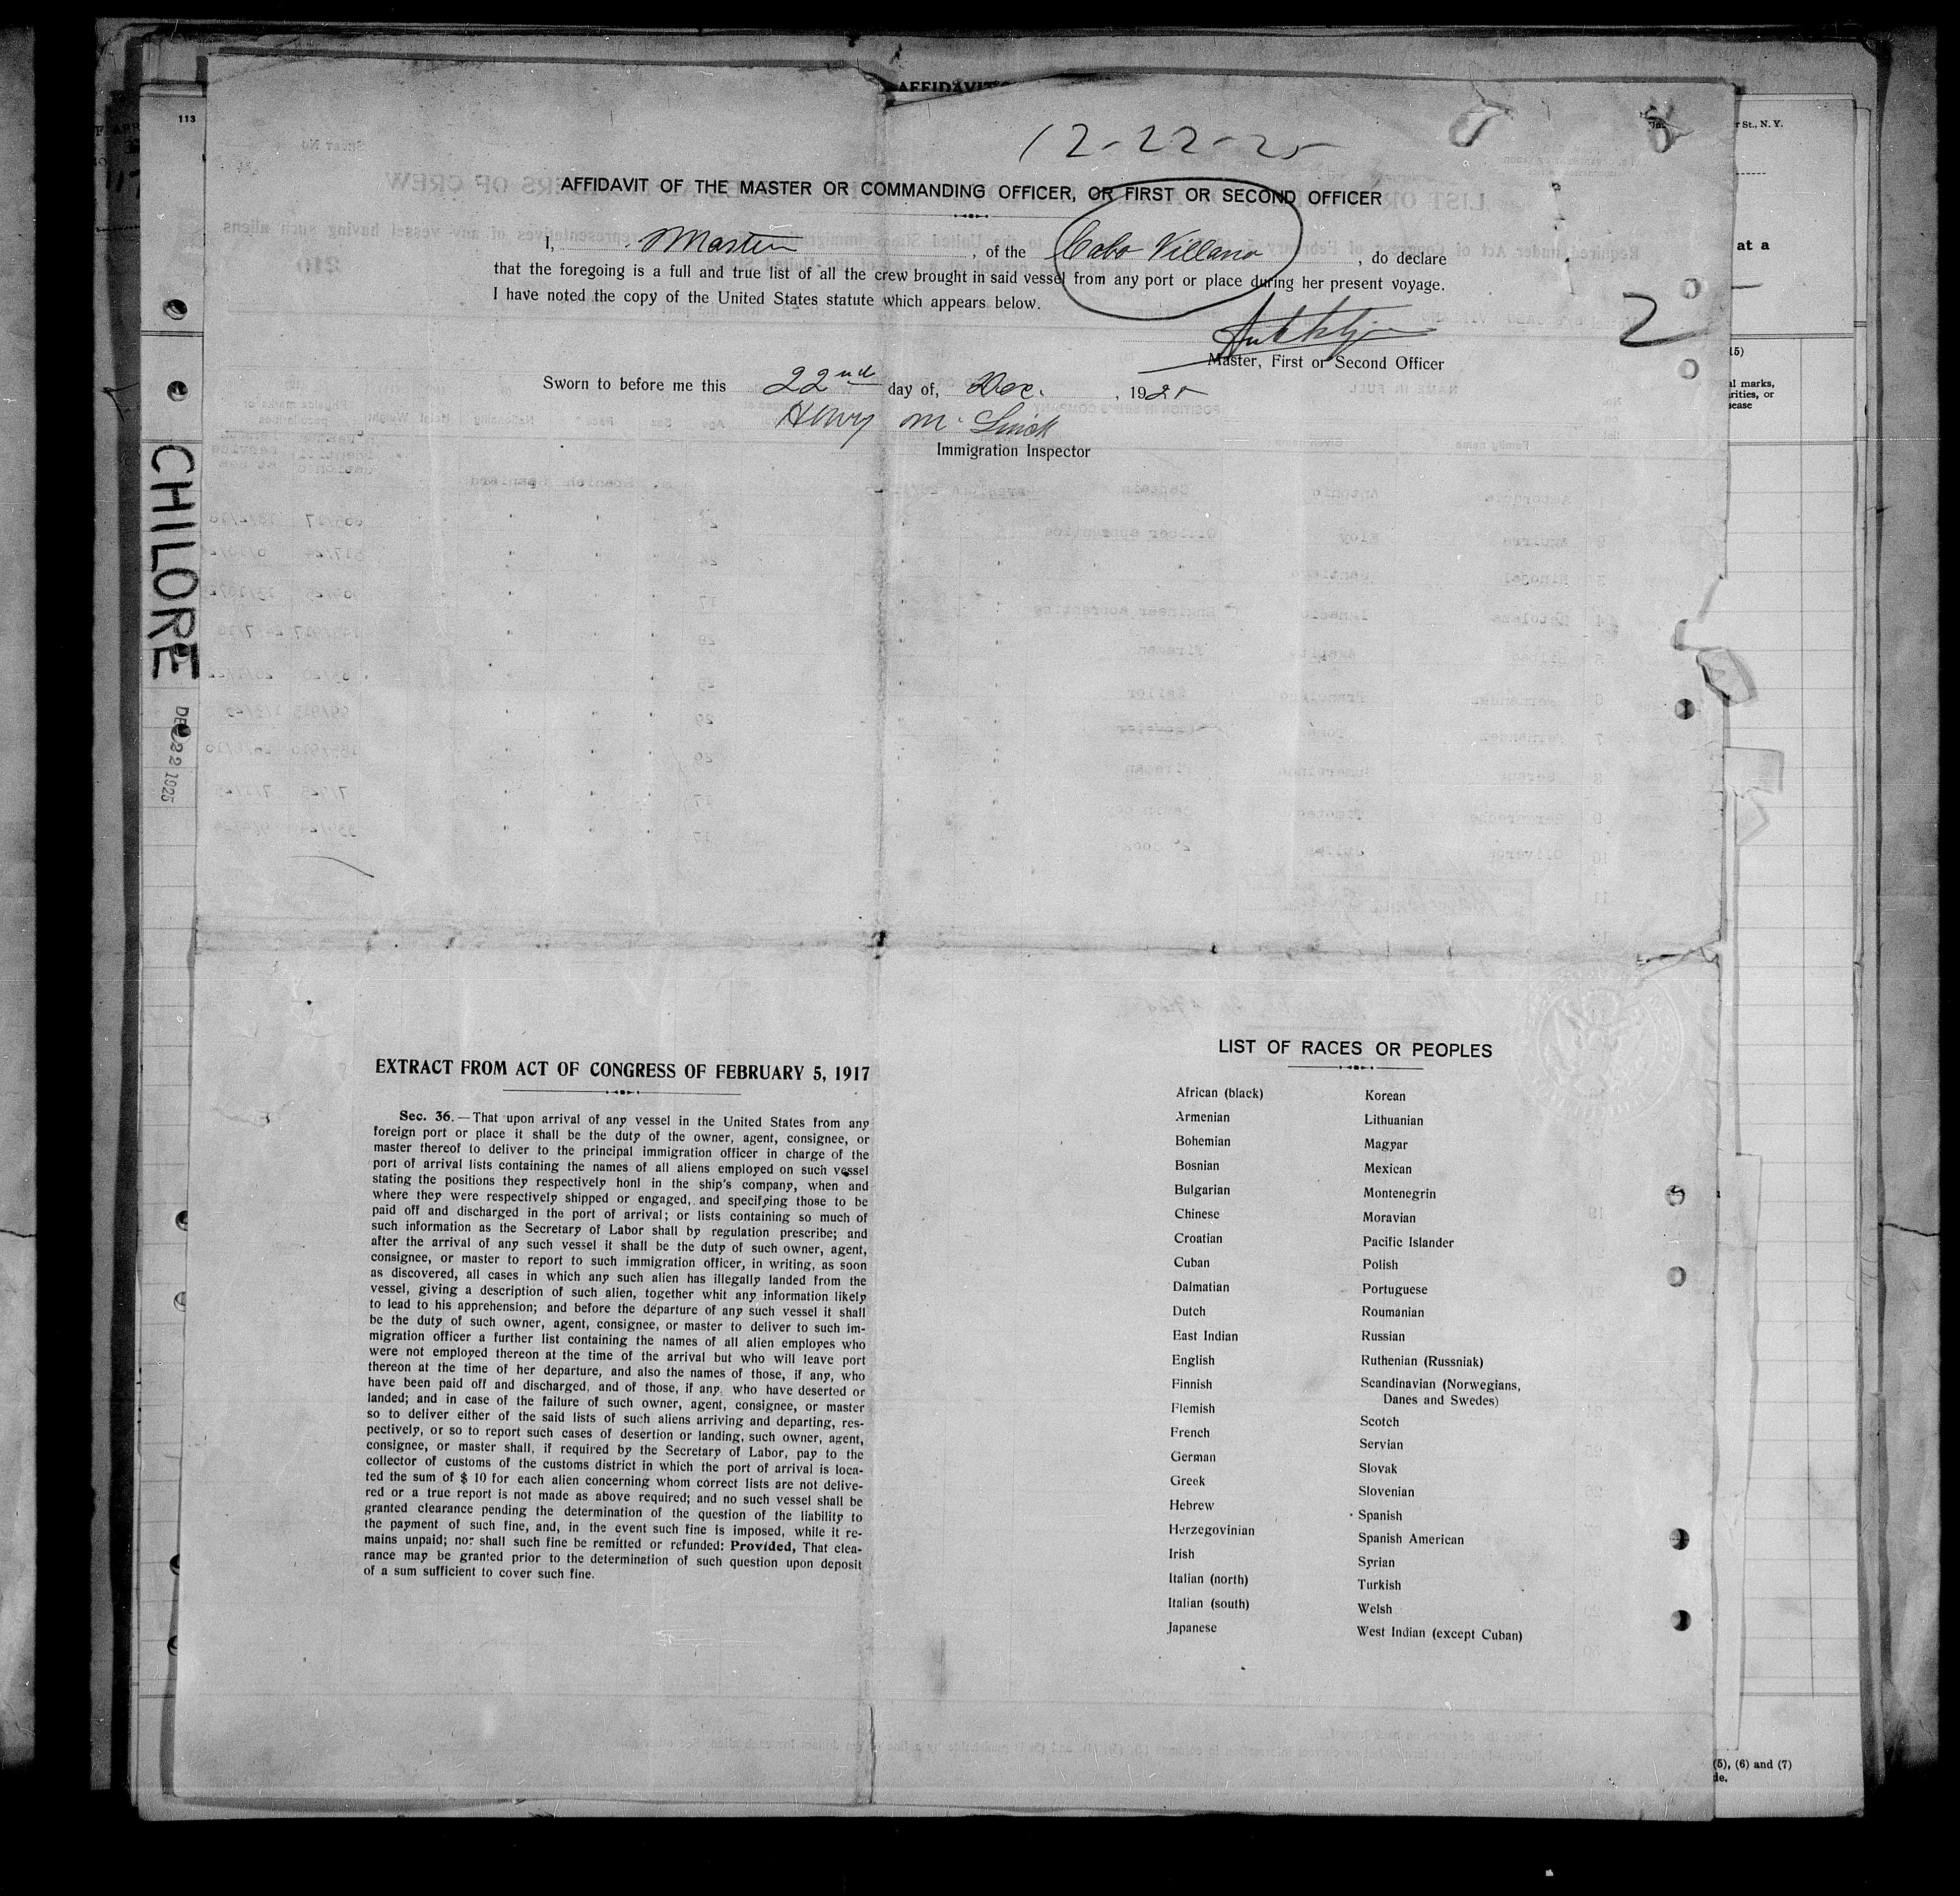 AFFIDAVIT
113
r St., N. Y.
12-22-25
AFFIDAVIT OF THE MASTER OR COMMANDING OFFICER, OR FIRST OR SECOND OFFICER
I, Master, of the Cabo Villano, do declare
that the foregoing is a full and true list of all the crew brought in said vessel from any port or place during her present voyage.
I have noted the copy of the United States statute which appears below.
at a
2
Master, First or Second Officer
Sworn to before me this 22nd day of, Dec., 1925
Henry M.
Immigration Inspector
15)
al marks,
rities, or
sease
CHILORE
DEC 22 1925
EXTRACT FROM ACT OF CONGRESS OF FEBRUARY 5, 1917
Sec. 36.—That upon arrival of any vessel in the United States from any
foreign port or place it shall be the duty of the owner, agent, consignee, or
master thereof to deliver to the principal immigration officer in charge of the
port of arrival lists containing the names of all aliens employed on such vessel
stating the positions they respectively honl in the ship's company, when and
where they were respectively shipped or engaged, and specifying those to be
paid off and discharged in the port of arrival; or lists containing so much of
such information as the Secretary of Labor shall by regulation prescribe; and
after the arrival of any such vessel it shall be the duty of such owner, agent,
consignee, or master to report to such immigration officer, in writing, as soon
as discovered, all cases in which any such alien has illegally landed from the
vessel, giving a description of such alien, together whit any information likely
to lead to his apprehension; and before the departure of any such vessel it shall
be the duty of such owner, agent, consignee, or master to deliver to such im-
migration officer a further list containing the names of all alien employes who
were not employed thereon at the time of the arrival but who will leave port
thereon at the time of her departure, and also the names of those, if any, who
have been paid off and discharged, and of those, if any, who have deserted or
landed; and in case of the failure of such owner, agent, consignee, or master
so to deliver either of the said lists of such aliens arriving and departing, res-
pectively, or so to report such cases of desertion or landing, such owner, agent,
consignee, or master shall, if required by the Secretary of Labor, pay to the
collector of customs of the customs district in which the port of arrival is loca-
ted the sum of $ 10 for each alien concerning whom correct lists are not delive-
red or a true report is not made as above required; and no such vessel shall be
granted clearance pending the determination of the question of the liability to
the payment of such fine, and, in the event such fine is imposed, while it re-
mains unpaid; nor shall such fine be remitted or refunded: Provided, That clea-
rance may be granted prior to the determination of such question upon deposit
of a sum sufficient to cover such fine.
LIST OF RACES OR PEOPLES
African (black)
Armenian
Bohemian
Bosnian
Bulgarian
Chinese
Croatian
Cuban
Dalmatian
Dutch
East Indian
English
Finnish
Flemish
French
German
Greek
Hebrew
Herzegovinian
Irish
Italian (north)
Italian (south)
Japanese
Korean
Lithuanian
Magyar
Mexican
Montenegrin
Moravian
Pacific Islander
Polish
Portuguese
Roumanian
Russian
Ruthenian (Russniak)
Scandinavian (Norwegians,
Danes and Swedes)
Scotch
Servian
Slovak
Slovenian
Spanish
Spanish American
Syrian
Turkish
Welsh
West Indian (except Cuban)
(5), (6) and (7)
de.